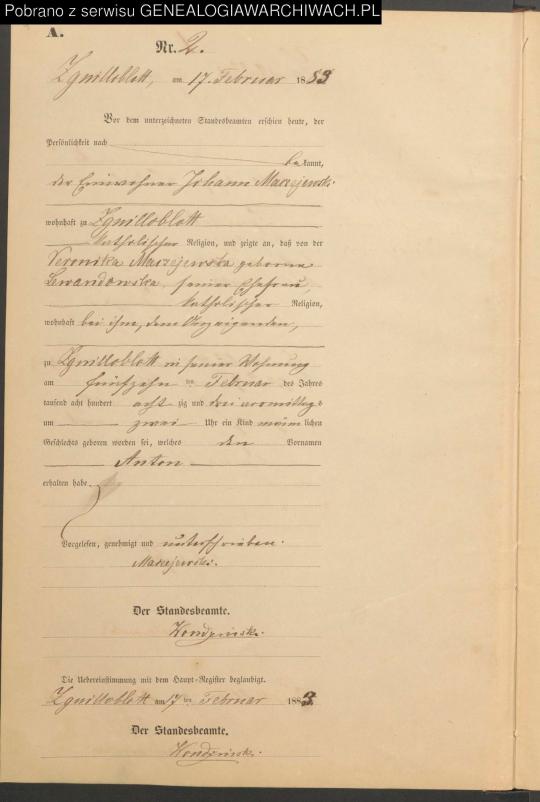 Pobrano z serwisu GENEALOGIAWARCHIWACH.PL
A.
Nr. 2.
Zgnilloblott, am 17. Februar 1883
Vor dem unterzeichneten Standesbeamten erschien heute, der
Persönlichkeit nach
bekannt,
der Einwohner Johann Maczejewski
wohnhaft zu Zgnilloblott
katholischer Religion, und zeigte an, daß von der
Veronika Maczejewska geborene
Lewandowska, seiner Ehefrau,
katholischer Religion,
wohnhaft bei ihm, dem Anzeigenden,
zu Zgnilloblott in seiner Wohnung
am fünfzehn ten Februar des Jahres
tausend acht hundert acht zig und drei Vormittags
um zwei Uhr ein Kind männlichen
Geschlechts geboren worden sei, welches den Vornamen
Anton
erhalten habe.
Vorgelesen, genehmigt und unterschrieben.
Maczejewski.
Der Standesbeamte.
Die Uebereinstimmung mit dem Haupt-Register beglaubigt.
Zgnilloblott am 17 ten Februar 1883.
Der Standesbeamte.